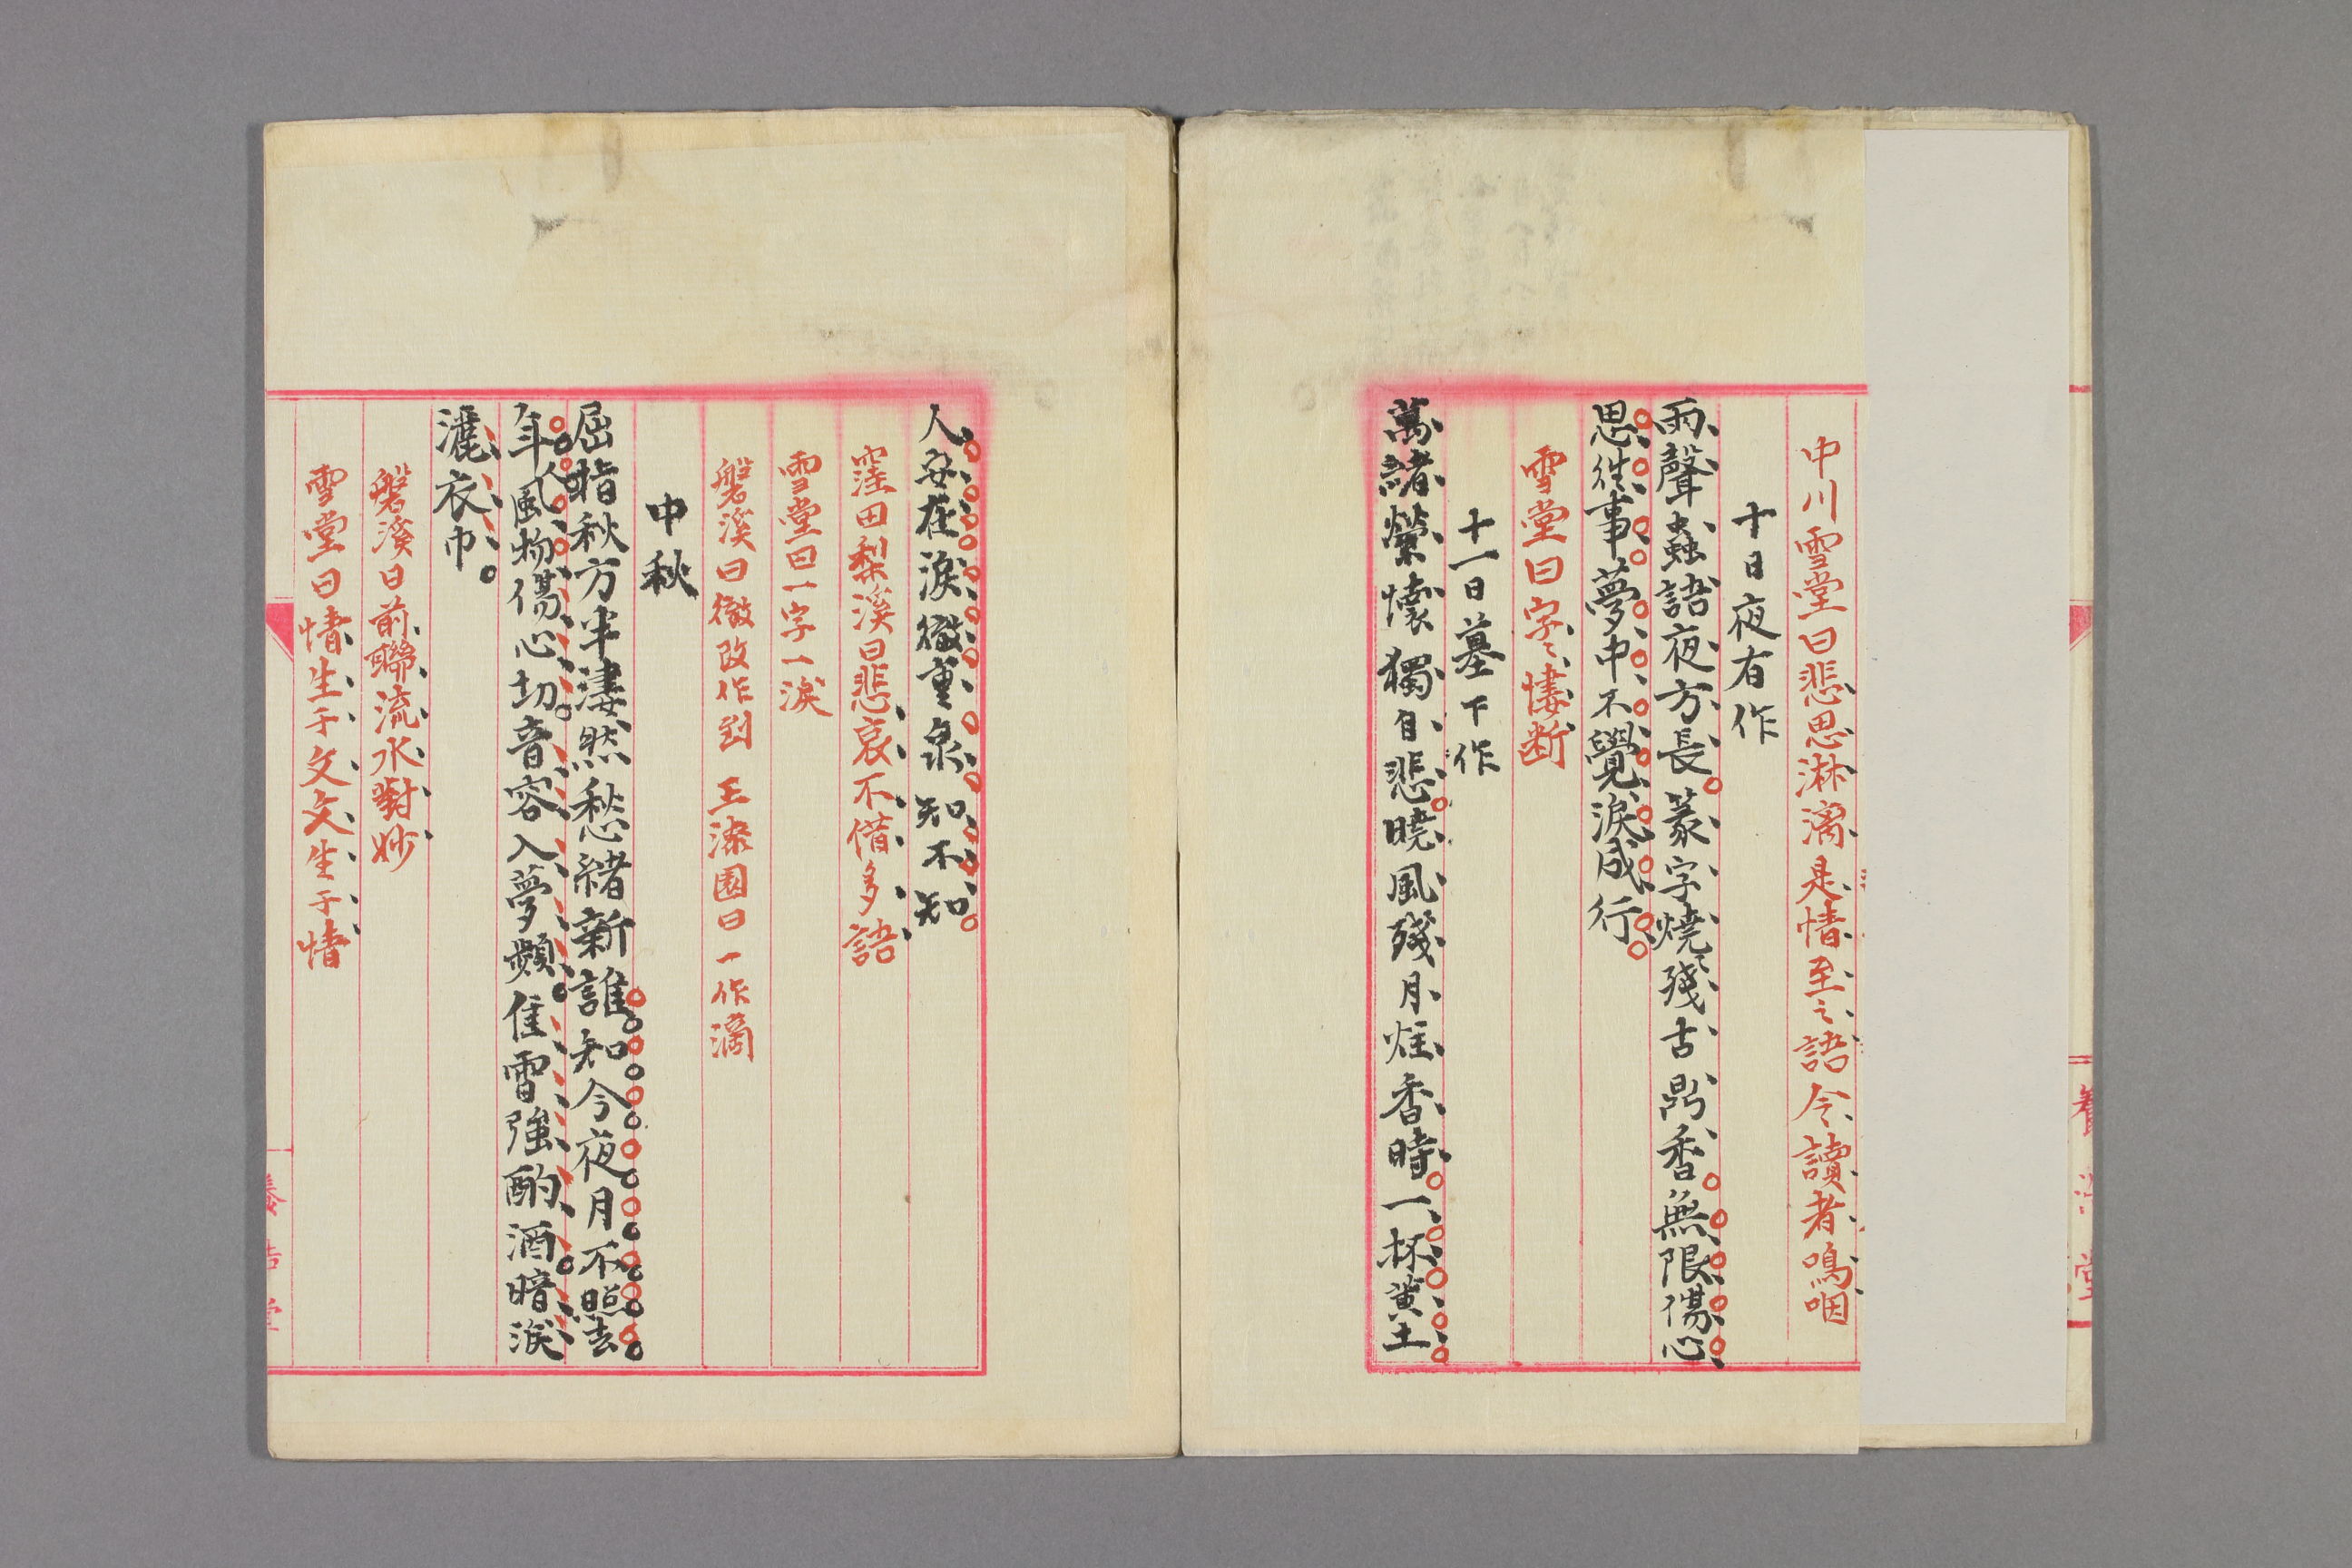 中川雪堂曰悲思淋漓是情至之語令讀者鳴咽
十日夜有作
雨聲蟲語夜方長篆字燒殘古鼎香無限傷心
思徃事夢中不覺淚成行
雪堂曰字々悽断
十一日墓下作
萬緒縈懷獨自悲曉風殘月炷香時一抔黄土
人安在淚徹重泉知不知
窪田梨溪曰悲哀不借多語
雪堂曰一字一淚
磐溪曰徹改作到 王漆園曰一作滴
中秋
屈指秋方半淒然愁緒新誰知今夜月不照去
年人風物傷心切音容入夢頻隹宵強酌酒暗淚
灑衣巾
磐溪曰前聯流水對妙
雪堂曰情生于文文生于情